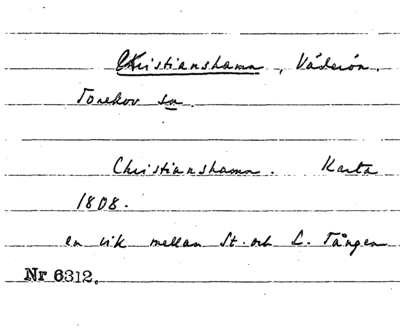 Christianshamn, Väderön.
Torekov sn.
Christianshamn. Karta
1808.
en vik mellan St. och L. Tången
Nr 6312.